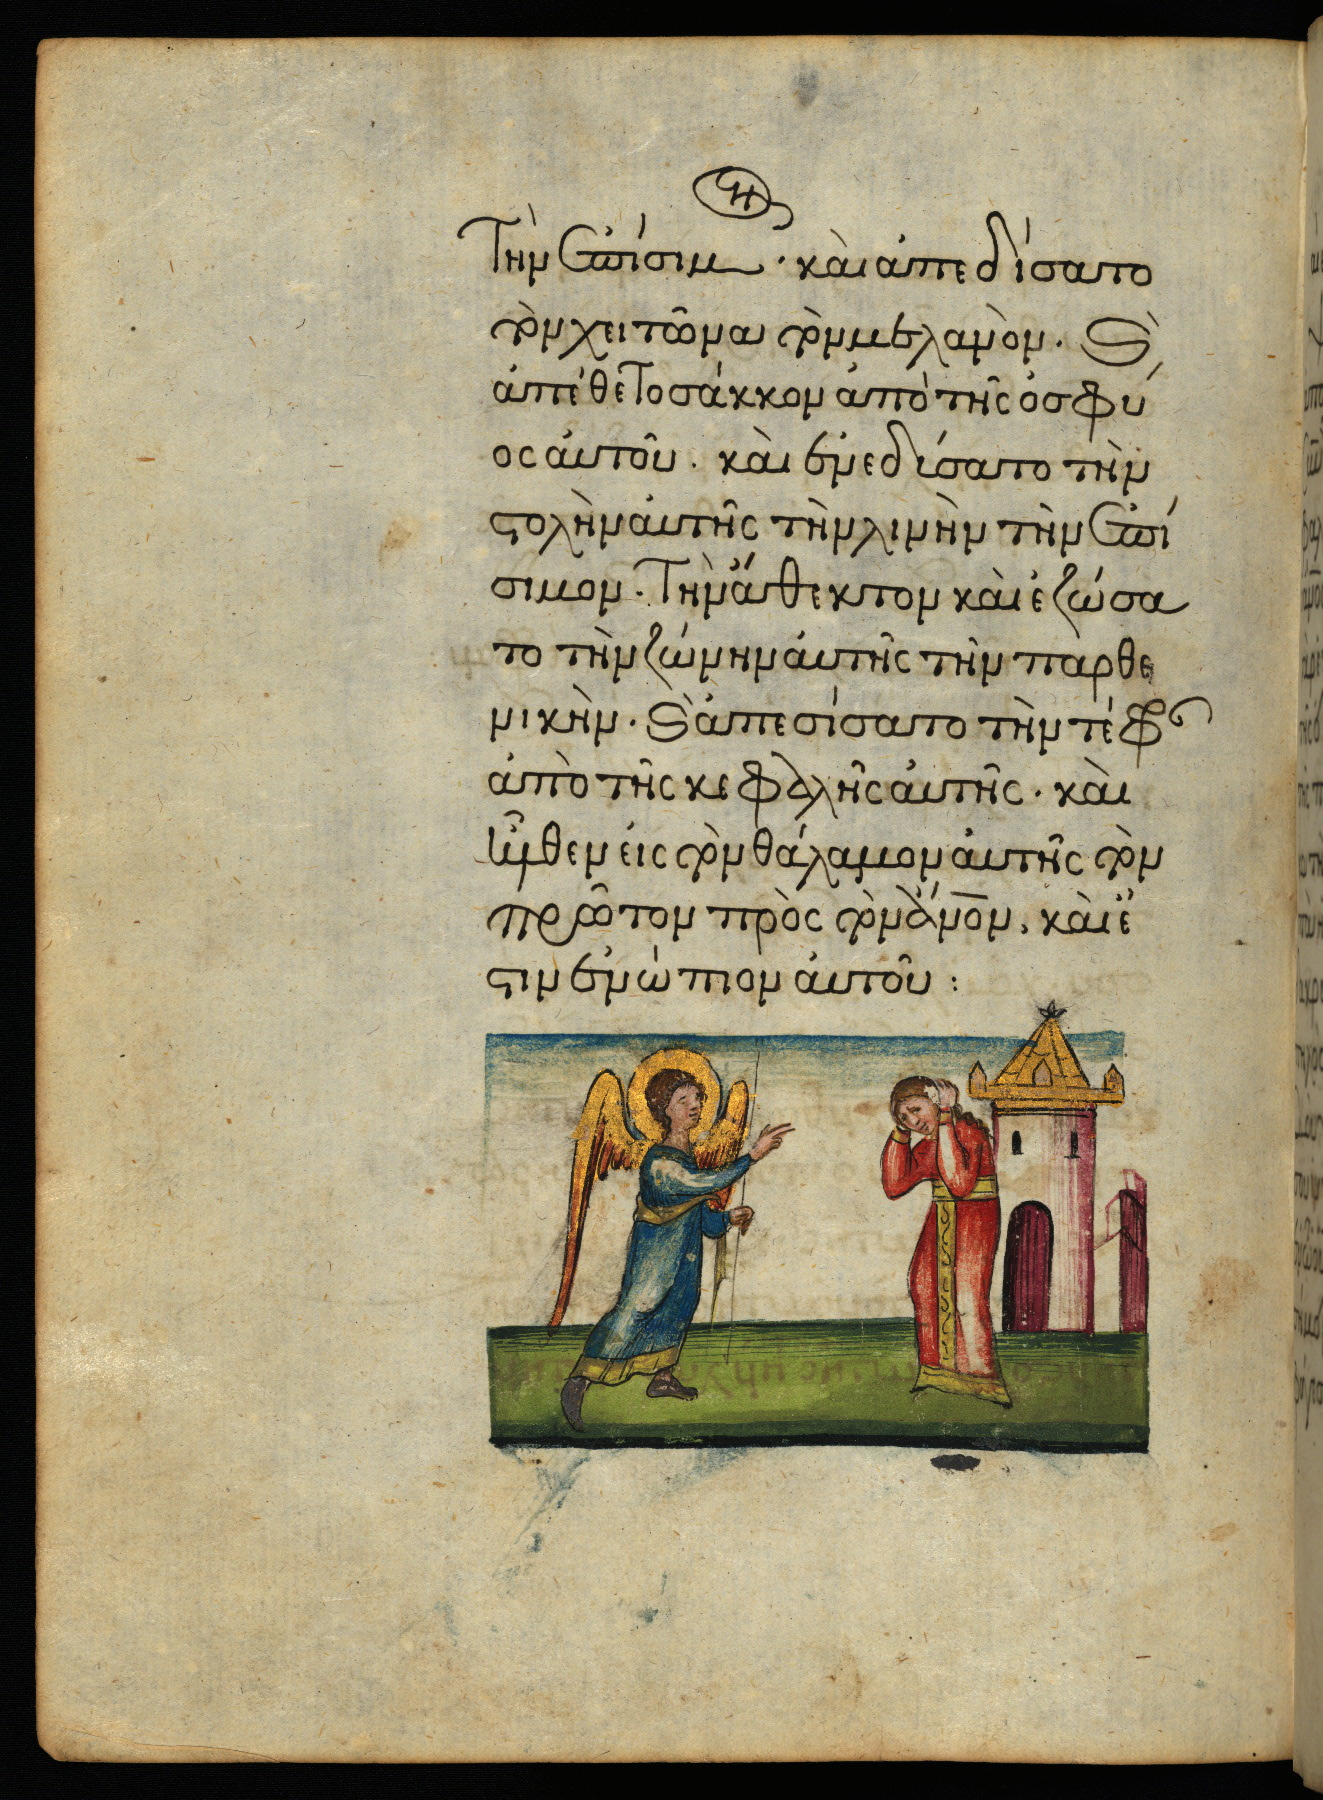 Τὴν ἐπίσιμ · καὶ ἀπεδίσατο
τὸν χειτῶναν τὸν μελανὸν · ϗ
ἀπέθετο σάκκον ἀπὸ τῆς ὀσφύ
ος ἀυτοῦ · καὶ ἐνεδίσατο τὴν
ϛολὴν ἀυτῆς τὴν λινὴν τὴν ἐπί
σιμον · Τὴν ἄθεκτον καὶ ἐζώσα
το τὴν ζώνην ἀυτῆς τὴν παρθε
νικὴν · ϗ ἀπεσίσατο τὴν τέφρ
ἀπὸ τῆς κεφαλῆς ἀυτῆς · καὶ
ἦλθεν εἰς τὸν θάλαμον ἀυτῆς τὸν
πρῶτον πρὸς τὸν ἄν̅ο̅ν, καὶ ἔ
ϛιν ἐνώπιον ἀυτοῦ :